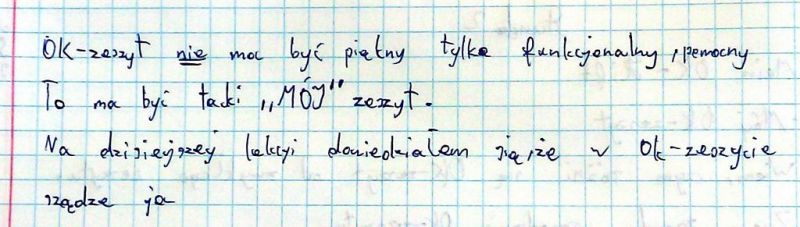 OK-zeszyt nie ma być piękny tylko funkcjonalny, pomocny
To ma być taki „MÓJ" zeszyt.
Na dzisiejszej lekcji dowiedziałem się, że w OK-zeszycie
rządze ja